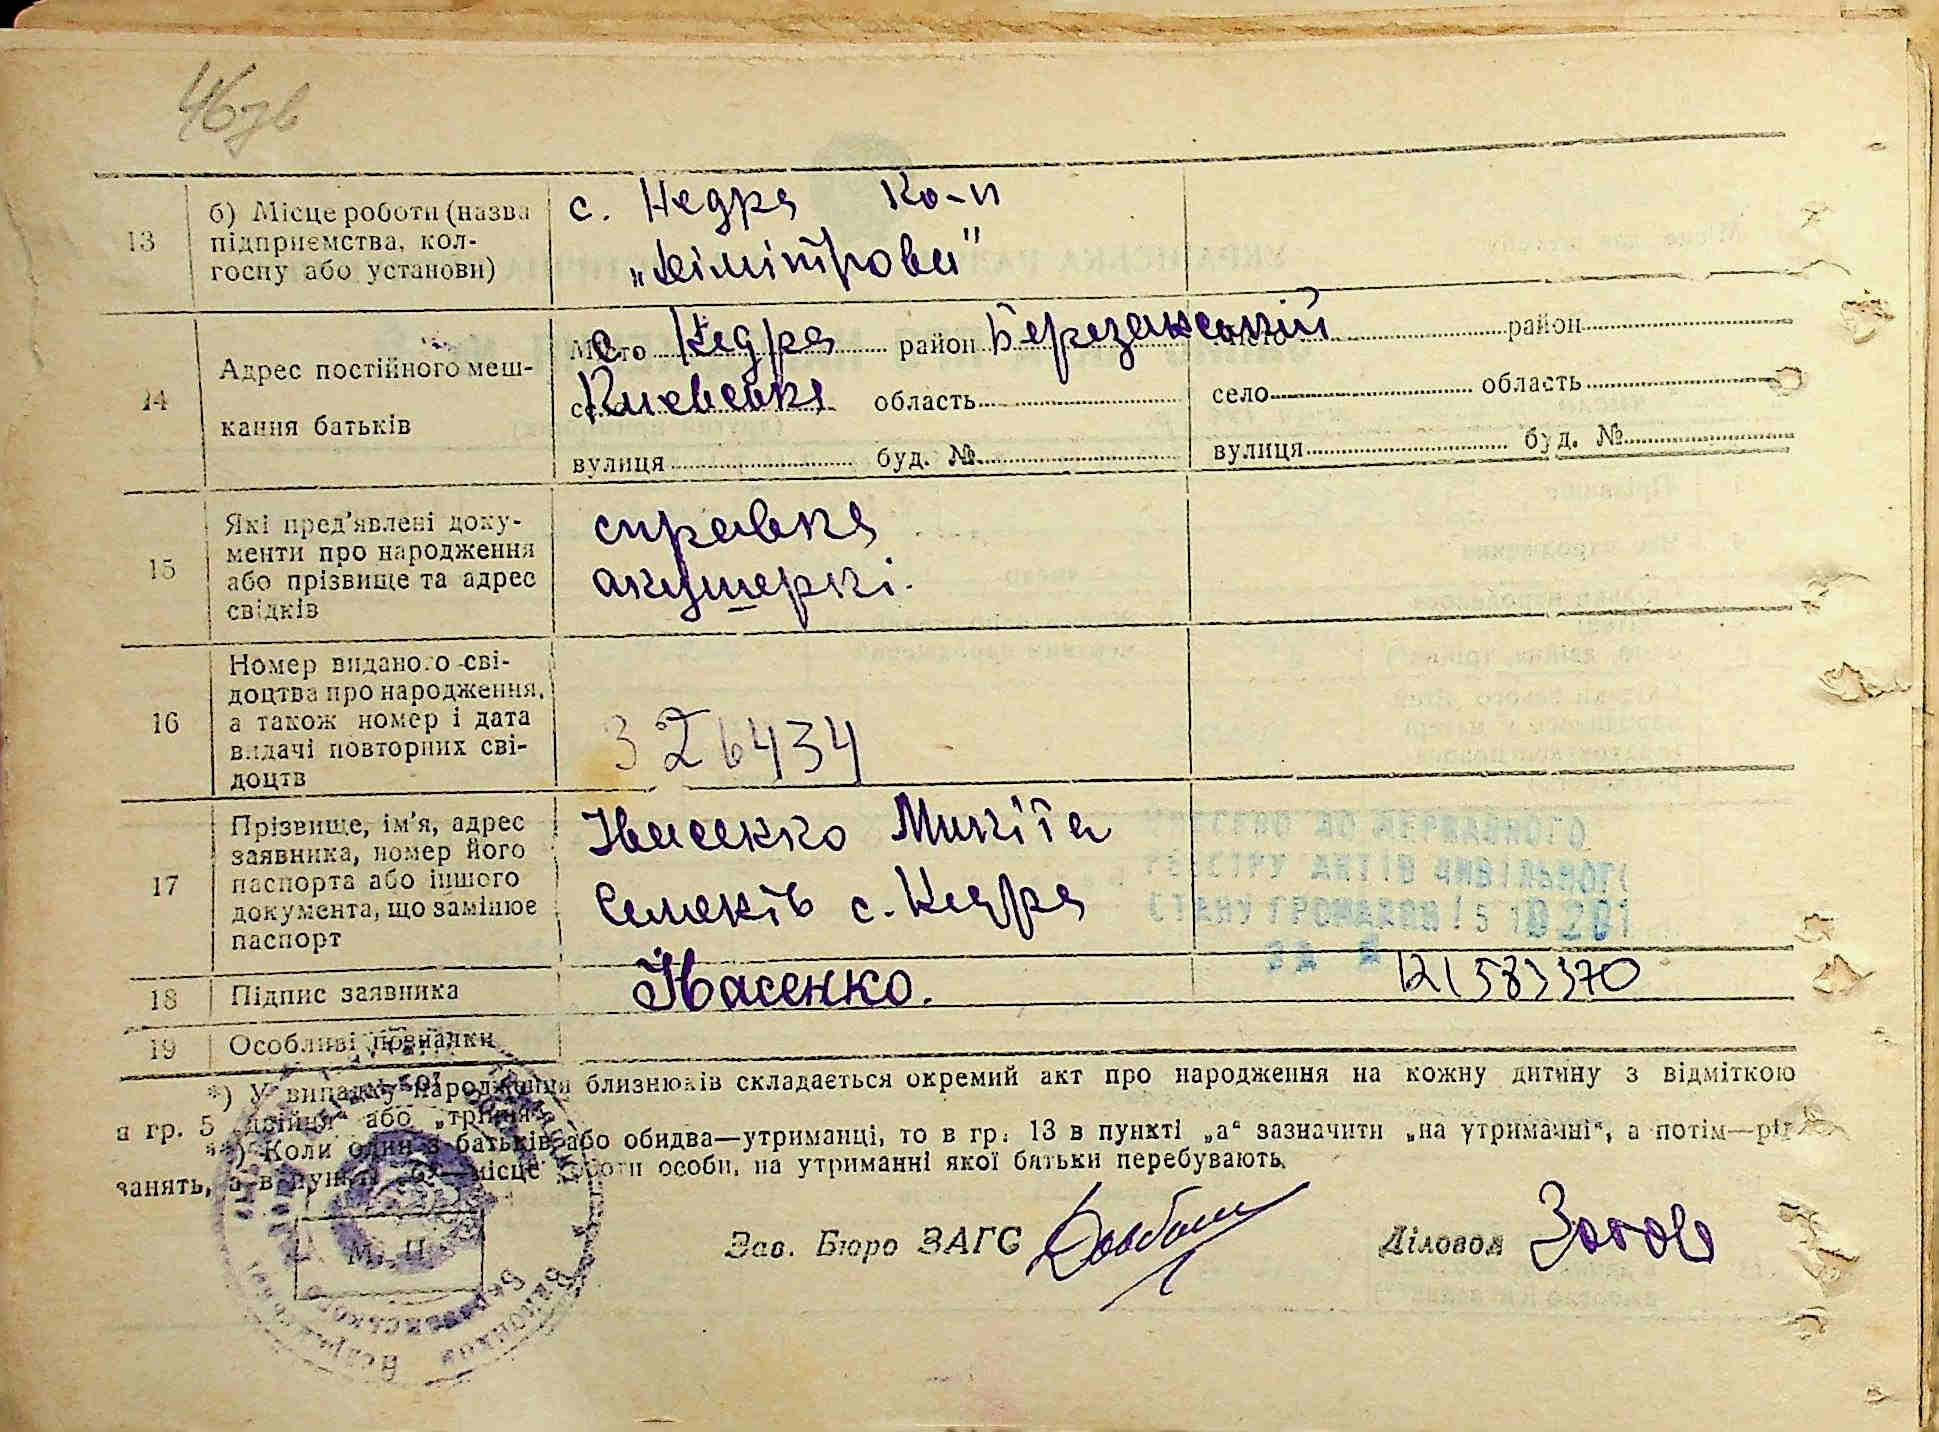 46зв
13 б) Місце роботи (назва підприємства, колгоспу або установи) с. Недра Ко-п
„Дімітрова"
14 Адрес постійного мешкання батьків
с. Недра район Березанський
Киевська область
вулиця буд. №
район
село область
вулиця буд. №
15 Які пред'явлені документи про народження або прізвище та адрес свідків
справка
акушеркі.
16 Номер виданого свідоцтва про народження, а також номер і дата видачі повторних свідоцтв
326434
17 Прізвище, ім'я, адрес заявника, номер його паспорта або іншого документа, що замінює паспорт
Івасенко Микіта
с. Недра
ДО ДЕРЖАВНОГО
РЕЄСТРУ АКТІВ ЦИВІЛЬНОГО
СТАНУ ГРОМАДЯН
ЗА №
18 Підпис заявника Івасенко.
19 Особливі позначки
*) У випадку народження близнюків складається окремий акт про народження на кожну дитину з відміткою
в гр. 5 „двійня" або „трійня".
**) Коли один з батьків або обидва—утриманці, то в гр. 13 в пункті „а" зазначити „на утриманні", а потім—рід
занять, а в пункті „б"—місце роботи особи, на утриманні якої батьки перебувають.
Зав. Бюро ЗАГС
Діловод
М. П.